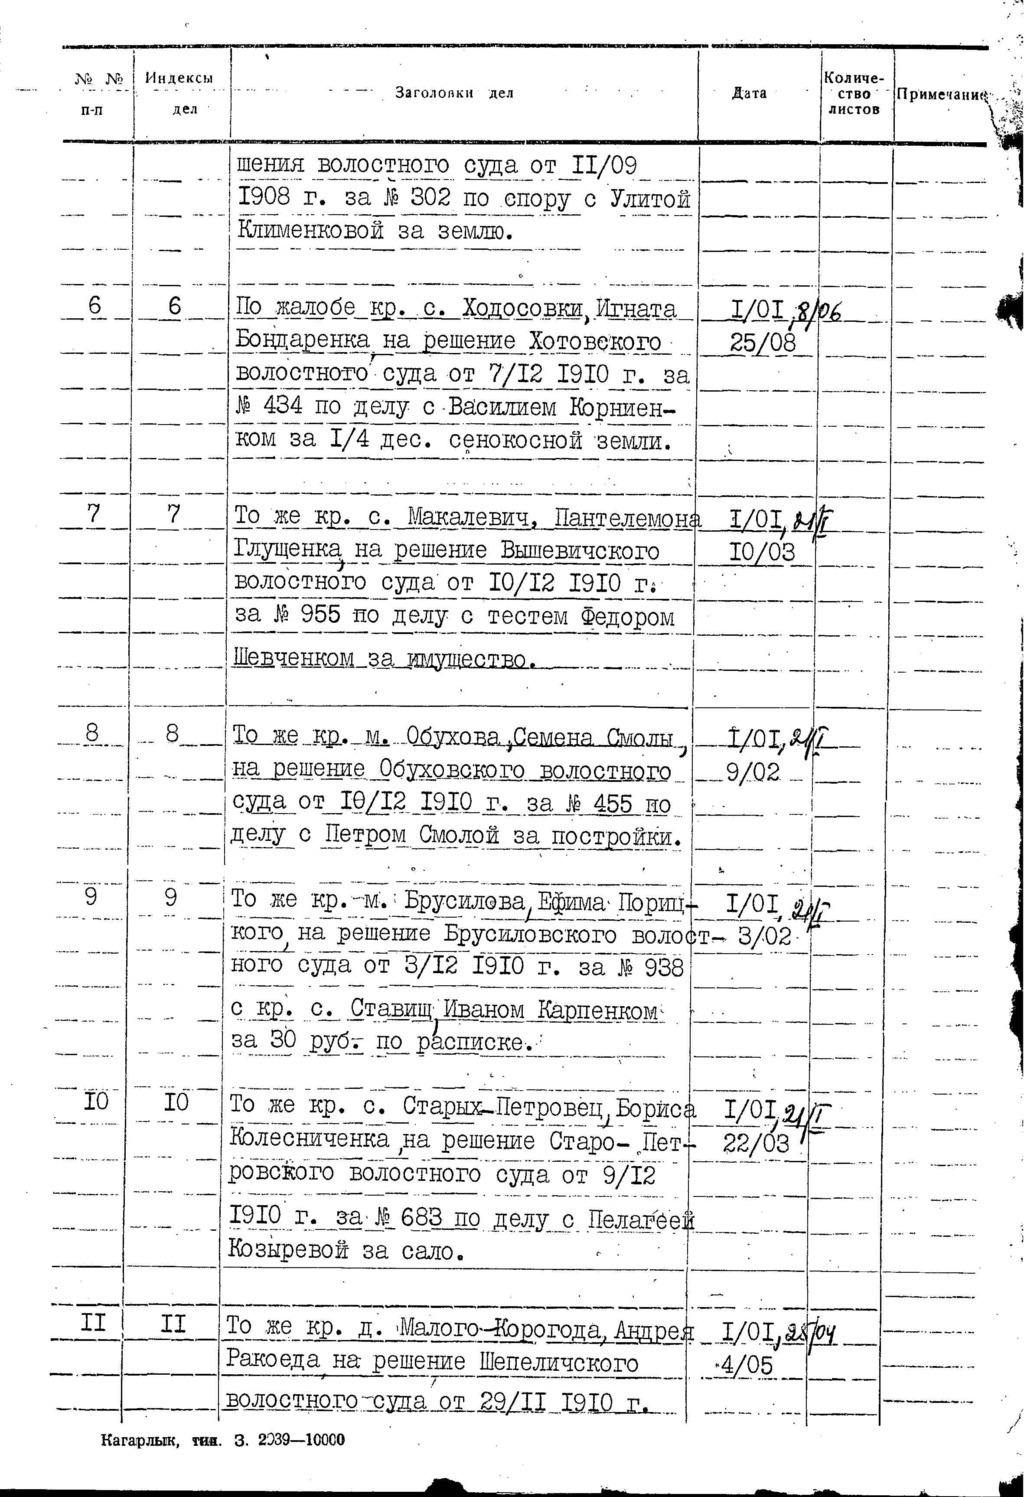 № №
п-п
Индексы
дел
Заголовки дел
Дата
Количе-
ство
листов
Примечание
шения волостного суда от II/09
1908 г. за № 302 по спору с Улитой
Клименковой за землю.
6 6 По жалобе кр. с. Ходосовки, Игната I/OI, 8/06
Бондаренка, на решение Хотовского 25/08
волостного суда от 7/I2 I9IO г. за
№ 434 по делу с Василием Корниен-
ком за I/4 дес. сенокосной земли.
7 7 То же кр. с. Макалевич, Пантелемона I/OI, 21/I
Глущенка, на решение Вышевичского IO/O3
волостного суда от IO/I2 I9IO г.
за № 955 по делу с тестем Федором
Шевченком за имущество.
8 8 То же кр. м. Обухова, Семена Смолы, I/OI, 21/I
на решение Обуховского волостного 9/02
суда от IO/I2 I9IO г. за № 455 по
делу с Петром Смолой за постройки.
9 9 То же кр. м. Брусилова, Ефима Пориц- I/OI, 21/I
кого, на решение Брусиловского волост- 3/02
ного суда от 3/I2 I9IO г. за № 938
с кр. с. Ставищ, Иваном Карпенком
за 30 руб. по расписке.
IO IO То же кр. с. Старых-Петровец, Бориса I/OI, 21/I
Колесниченка, на решение Старо-Пет- 22/03
ровского волостного суда от 9/I2
I9IO г. за № 683 по делу с Пелагеей
Козыревой за сало.
II II То же кр. д. Малого-Корогода, Андрея I/OI, 28/04
Ракоеда, на решение Шепеличского 4/05
волостного суда от 29/II I9IO г.
Кагарлык, тип. З. 2039—10000